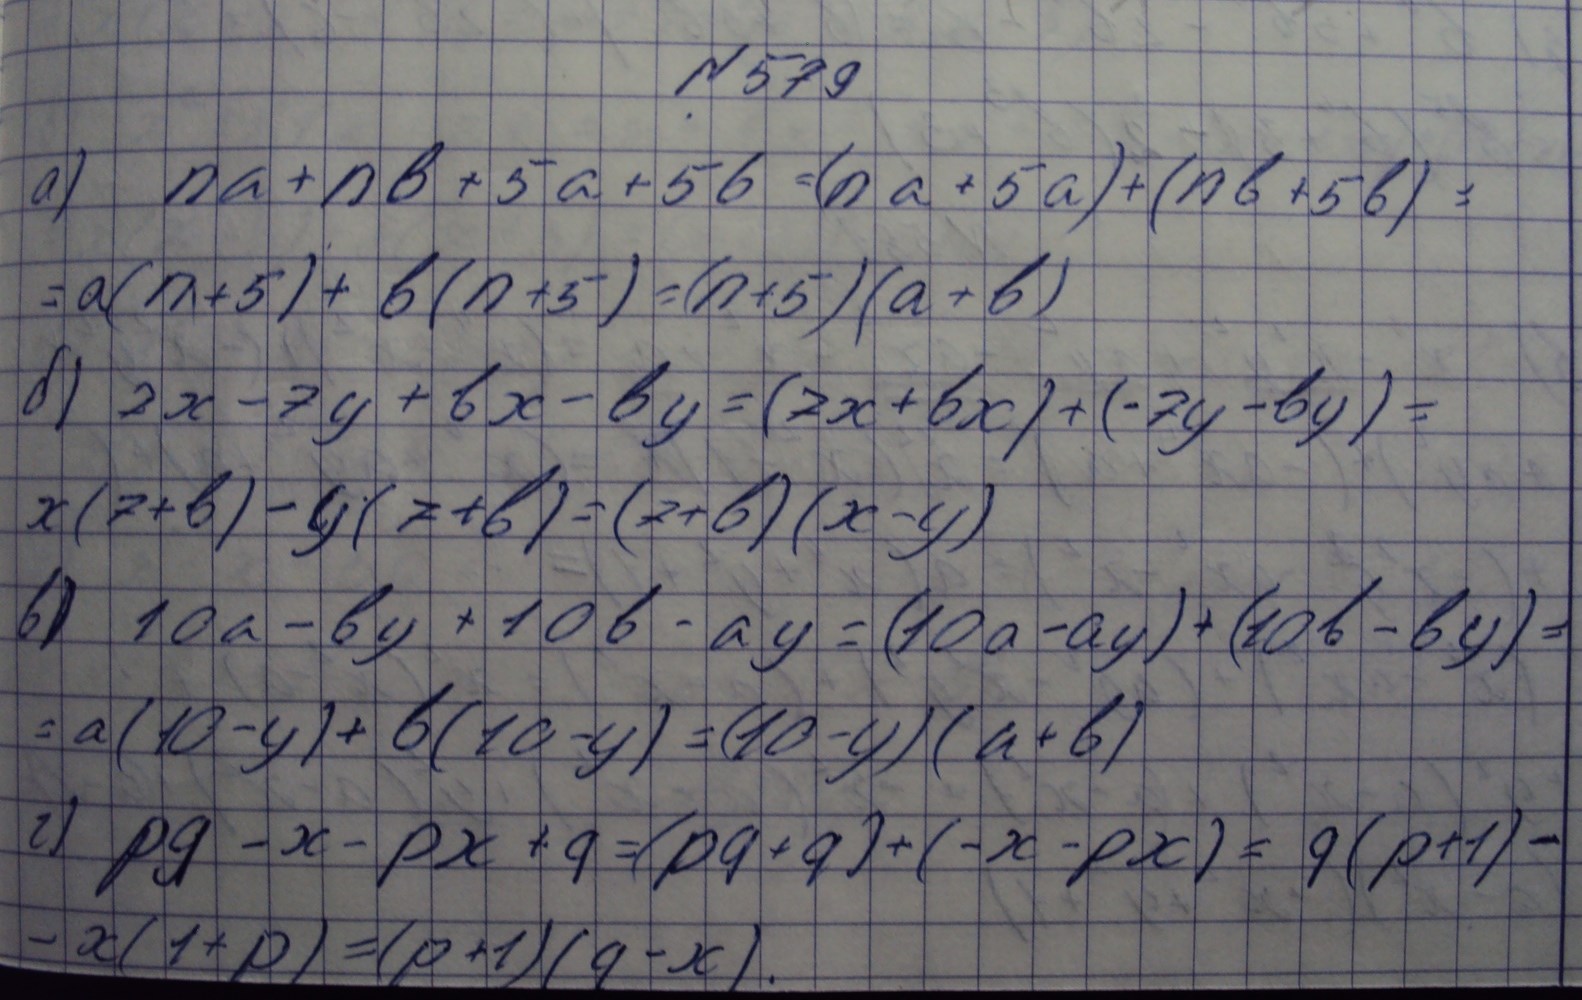 №579
а) na+nb+5a+5b=(na+5a)+(nb+5b)=
=a(n+5)+b(n+5)=(n+5)(a+b)
б) 7x-7y+bx-by=(7x+bx)+(-7y-by)=
x(7+b)-y(7+b)=(7+b)(x-y)
в) 10a-by+10b-ay=(10a-ay)+(10b-by)=
=a(10-y)+b(10-y)=(10-y)(a+b)
г) pq-x-px+q=(pq+q)+(-x-px)=q(p+1)-
-x(1+p)=(p+1)(q-x).